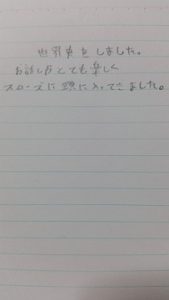 世界史をしました。
お話しがとても楽しく
スムーズに頭に入ってきました。